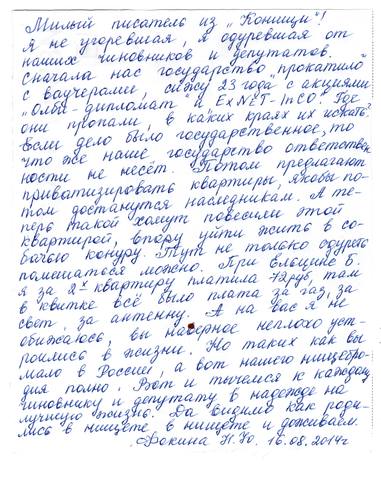 Милый писатель из „Конищи"!
Я не угоревшая, я одуревшая от
наших чиновников и депутатов.
Сначала нас государство „прокатило"
с ваучерами, сижу 23 года с акциями
„Олби-дипломат" и ExNET-InCO. Где
они пропали, в каких краях их искать?
Если дело было государственное, то
что же наше государство ответствен
ности не несёт. Потом предлагают
приватизировать квартиры, якобы по-
том достанутся наследникам. А те-
перь такой хомут повесили этой
квартирой, впору уйти жить в со-
бачью конуру. Тут не только одуреть
помешаться можно. При Ельцине Б.
я за 2ª квартиру платила 72 руб, там
в квитке всё было плата за газ, за
свет, за антенну. А на вас я не
обижаюсь, вы наверное неплохо уст-
роились в жизни. Но таких как вы
мало в России, а вот нашего нищебро-
дия полно. Вот и тычемся к каждому
чиновнику и депутату в надежде на
лучшую жизнь. Да видимо как роди-
лись в нищете, в нищете и доживаем.
Фокина Н.Ю. 16.08.2014г